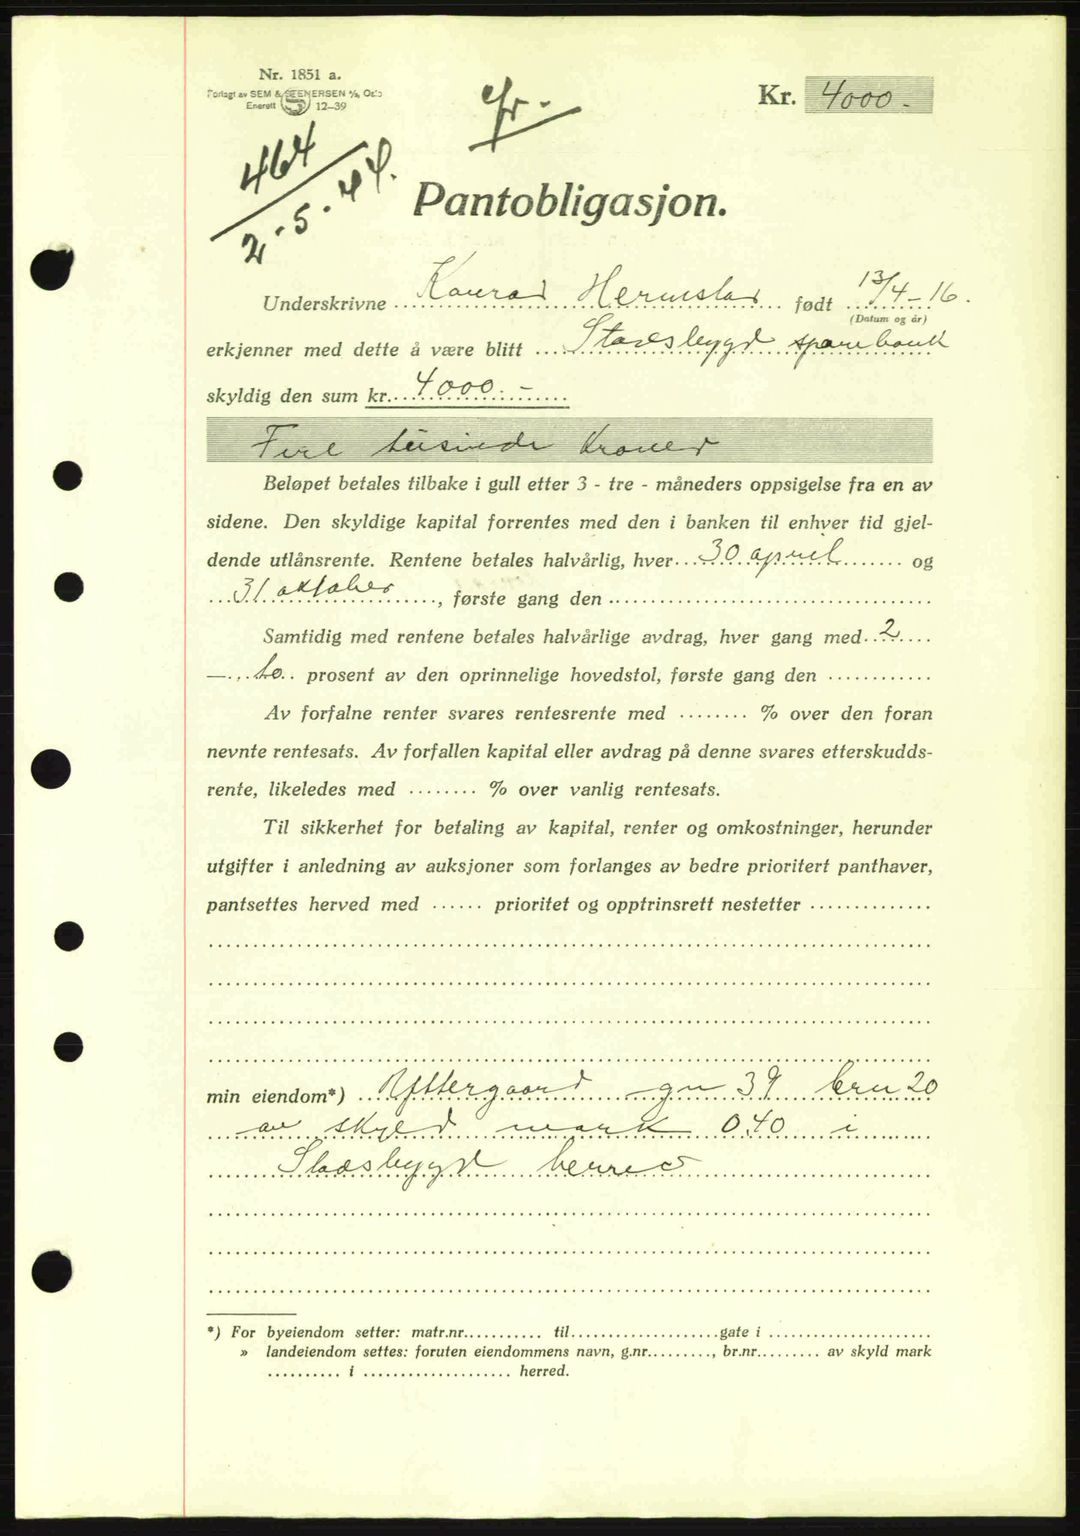 Nr. 1851 a.
Forlagt av SEM & STENERSEN A/S, Oslo
Enerett 12-39
Kr. 4000.-
464
2-5-44.
Pantobligasjon.
Underskrivne Konrad Hermstad født 13/4-16.
(Datum og år)
erkjenner med dette å være blitt Stadsbygd sparebank
skyldig den sum kr. 4000.-
Fire tusinde Kroner
Beløpet betales tilbake i gull etter 3 - tre - måneders oppsigelse fra en av
sidene. Den skyldige kapital forrentes med den i banken til enhver tid gjel-
dende utlånsrente. Rentene betales halvårlig, hver 30 april og
31 oktober, første gang den
Samtidig med rentene betales halvårlige avdrag, hver gang med 2
— to prosent av den oprinnelige hovedstol, første gang den
Av forfalne renter svares rentesrente med ........ % over den foran
nevnte rentesats. Av forfallen kapital eller avdrag på denne svares etterskudds-
rente, likeledes med ........ % over vanlig rentesats.
Til sikkerhet for betaling av kapital, renter og omkostninger, herunder
utgifter i anledning av auksjoner som forlanges av bedre prioritert panthaver,
pantsettes herved med ...... prioritet og opptrinsrett nestetter
min eiendom*) gn 39 bru 20
av skyld mark 0.40 i
Stadsbygd herred
*) For byeiendom setter: matr.nr........... til....................gate i ......................
» landeiendom settes: foruten eiendommens navn, g.nr........., br.nr......... av skyld mark
.......... i .................... herred.